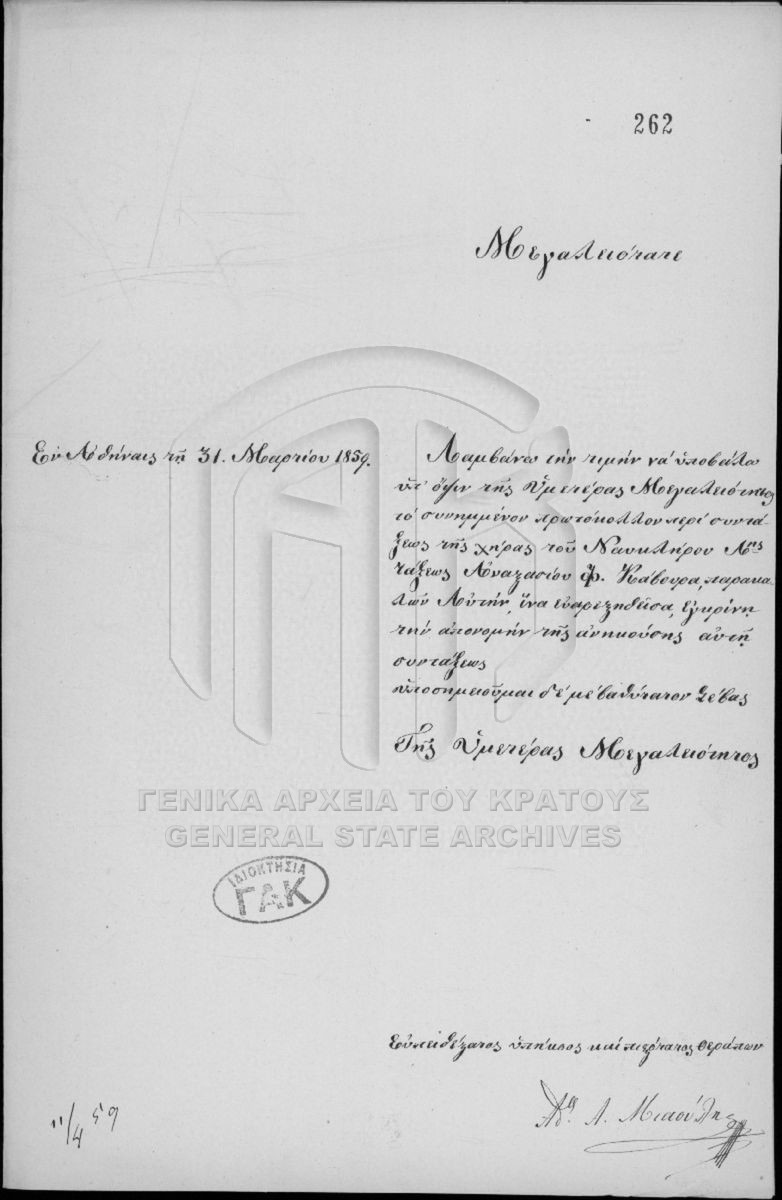 262
Μεγαλειότατε
Ἐν Ἀθήναις τῇ 31. Μαρτίου 1859.
Λαμβάνω τὴν τιμὴν νὰ ὑποβάλω
ὑπ' ὄψιν τῆς Ὑμετέρας Μεγαλειότητος
τὸ συνημμένον πρωτόκολλον περὶ συντά-
ξεως τῆς χήρας τοῦ Ναυκλήρου Αης
τάξεως Ἀναστασίου Φ. Κάβουρα, παρακα-
λῶν Αὐτήν, ἵνα εὐαρεστηθεῖσα, ἐγκρίνῃ
τὴν ἀπονομὴν τῆς ἀνηκούσης αὐτῇ
συντάξεως
ὑποσημειοῦμαι δὲ μὲ βαθύτατον σέβας
Τῆς Ὑμετέρας Μεγαλειότητος
ΓΕΝΙΚΑ ΑΡΧΕΙΑ ΤΟΥ ΚΡΑΤΟΥΣ
GENERAL STATE ARCHIVES
ΙΔΙΟΚΤΗΣΙΑ
ΓΑΚ
Εὐπειθέστατος ὑπήκοος καὶ πιστότατος θεράπων
Ἀθ. Α. Μιαούλης
11/4 59